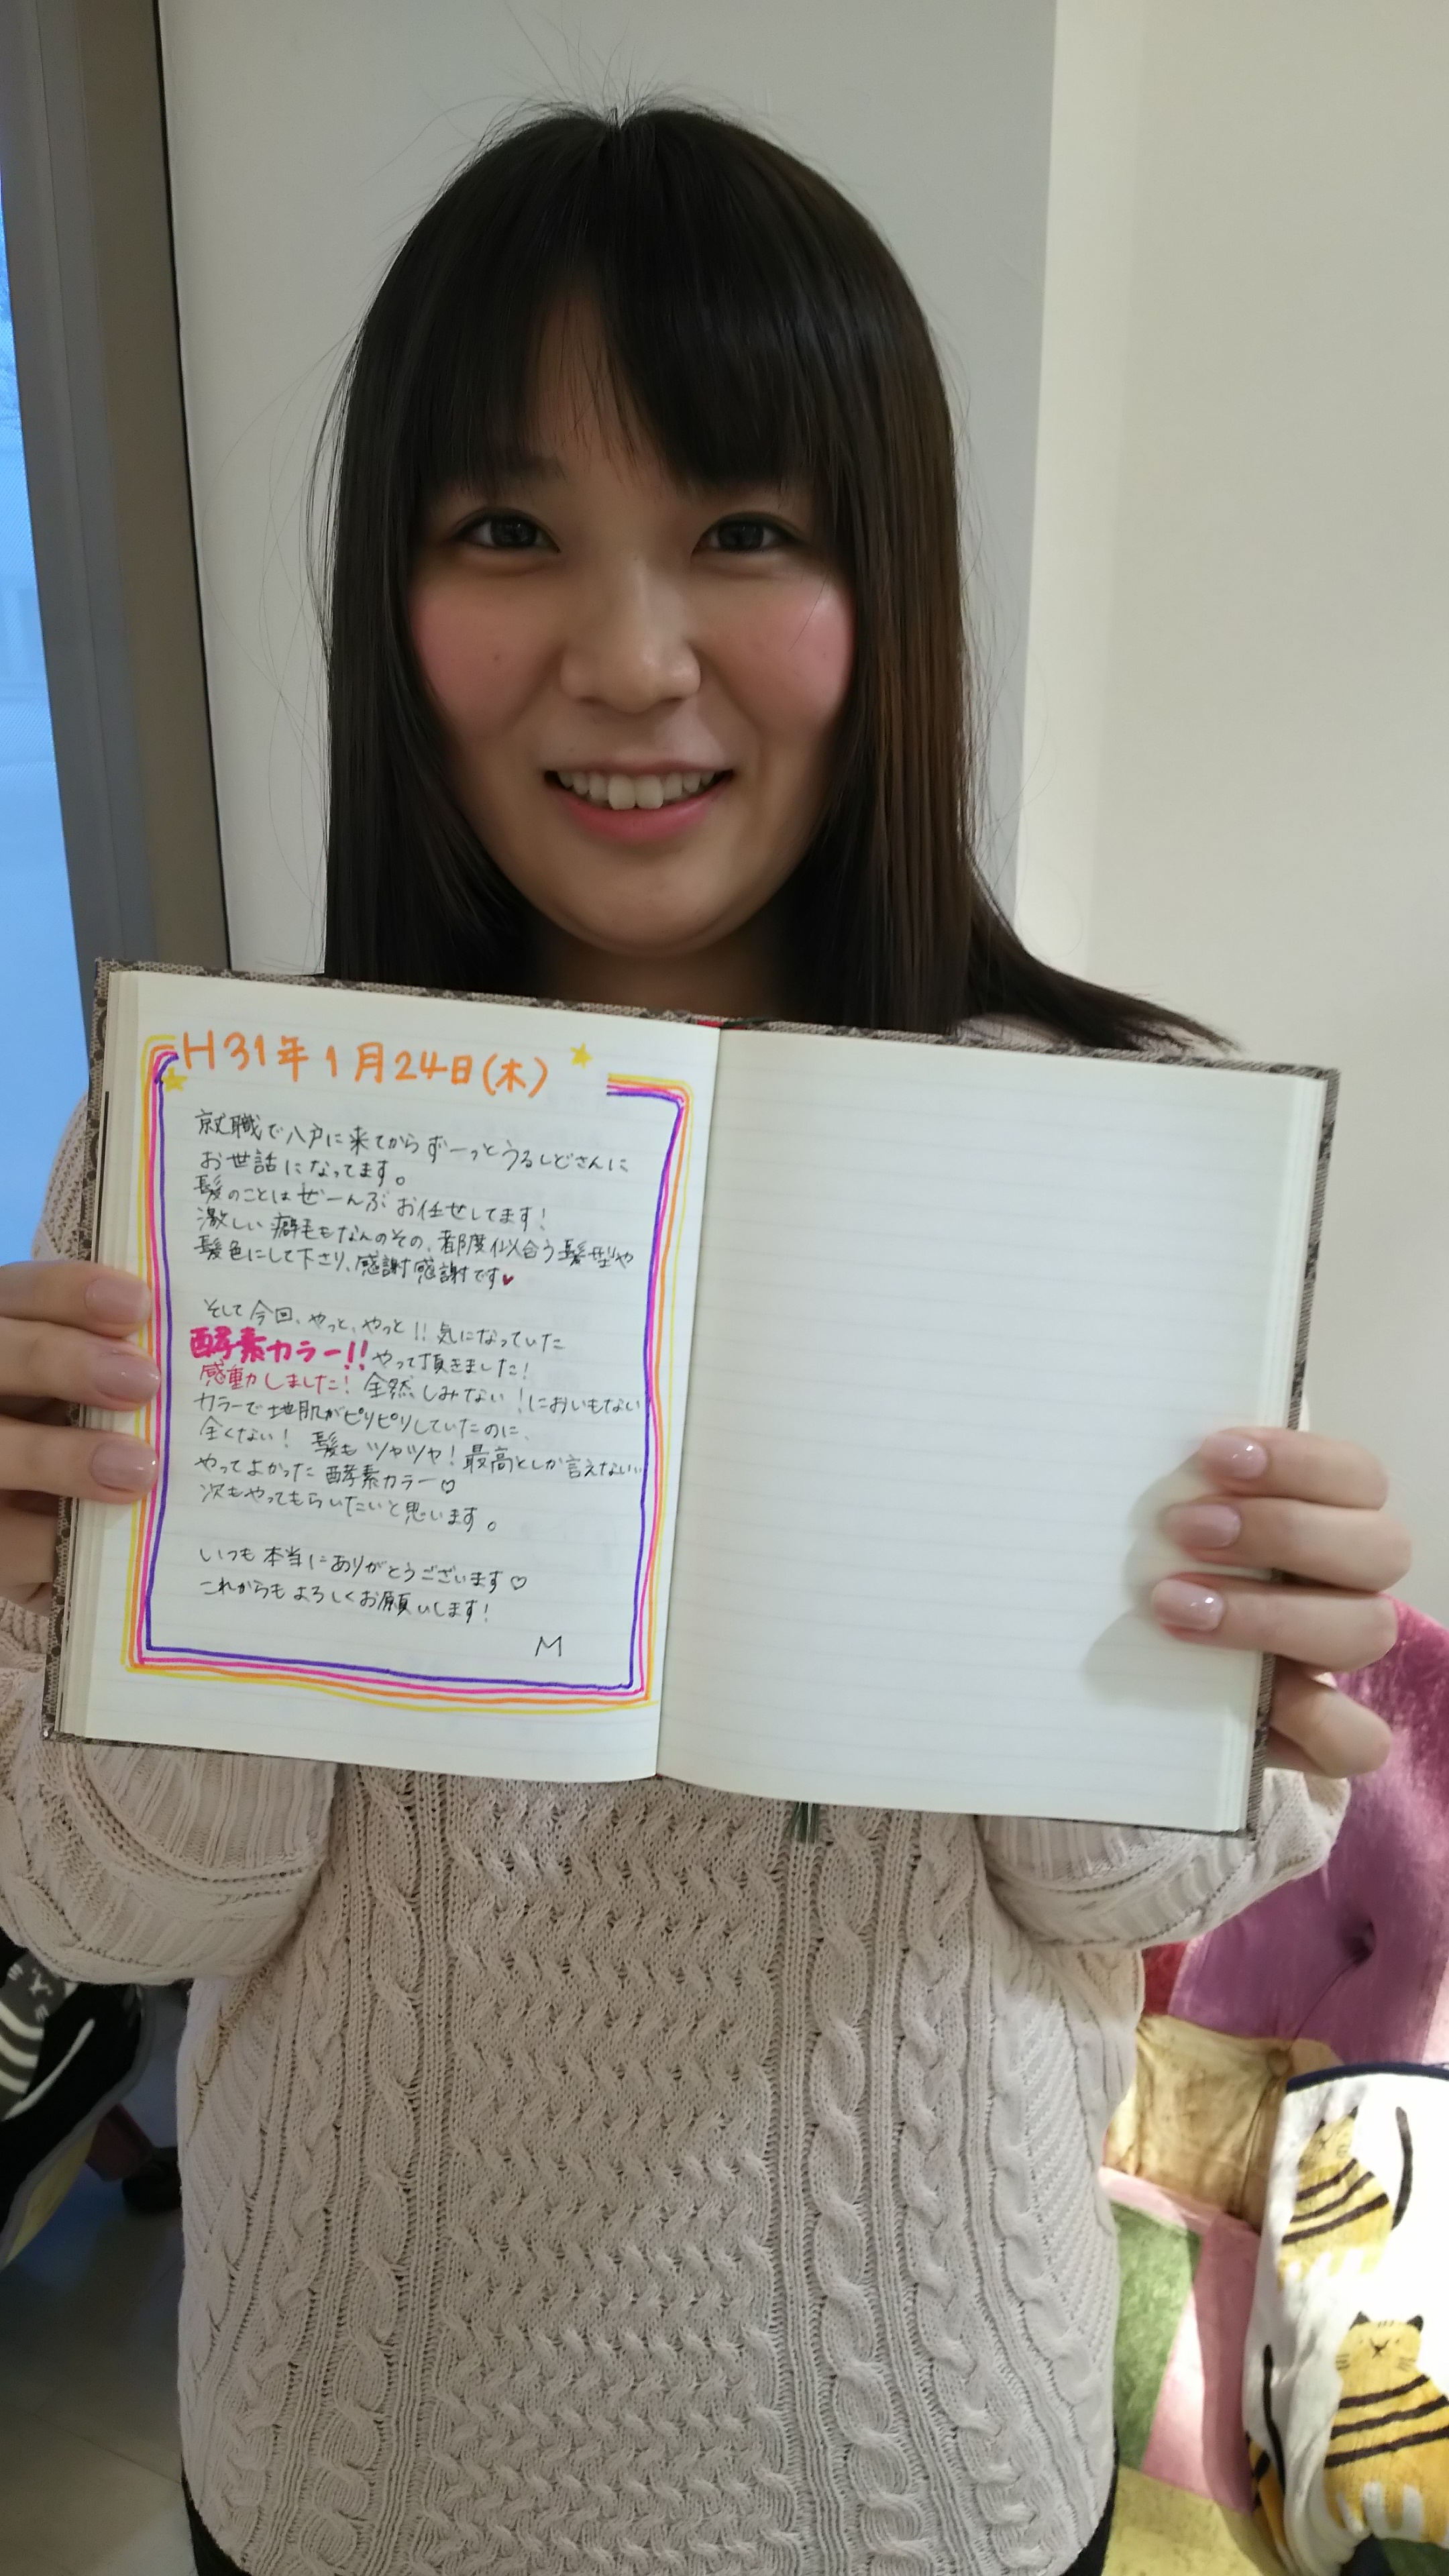 H31年1月24日(木)
就職で八戸に来てからずーっとうるしどさんに
お世話になってます。
髪のことはぜーんぶお任せしてます!
激しい癖毛もなんのその、都度似合う髪型や
髪色にして下さり、感謝感謝です♥
そして今回、やっと、やっと!!気になっていた
酵素カラー!!やって頂きました!
感動しました!全然しみない!においもない
カラーで地肌がピリピリしていたのに、
全くない!髪もツヤツヤ!最高としか言えない…
やってよかった酵素カラー♡
次もやってもらいたいと思います。
いつも本当にありがとうございます♡
これからもよろしくお願いします!
M